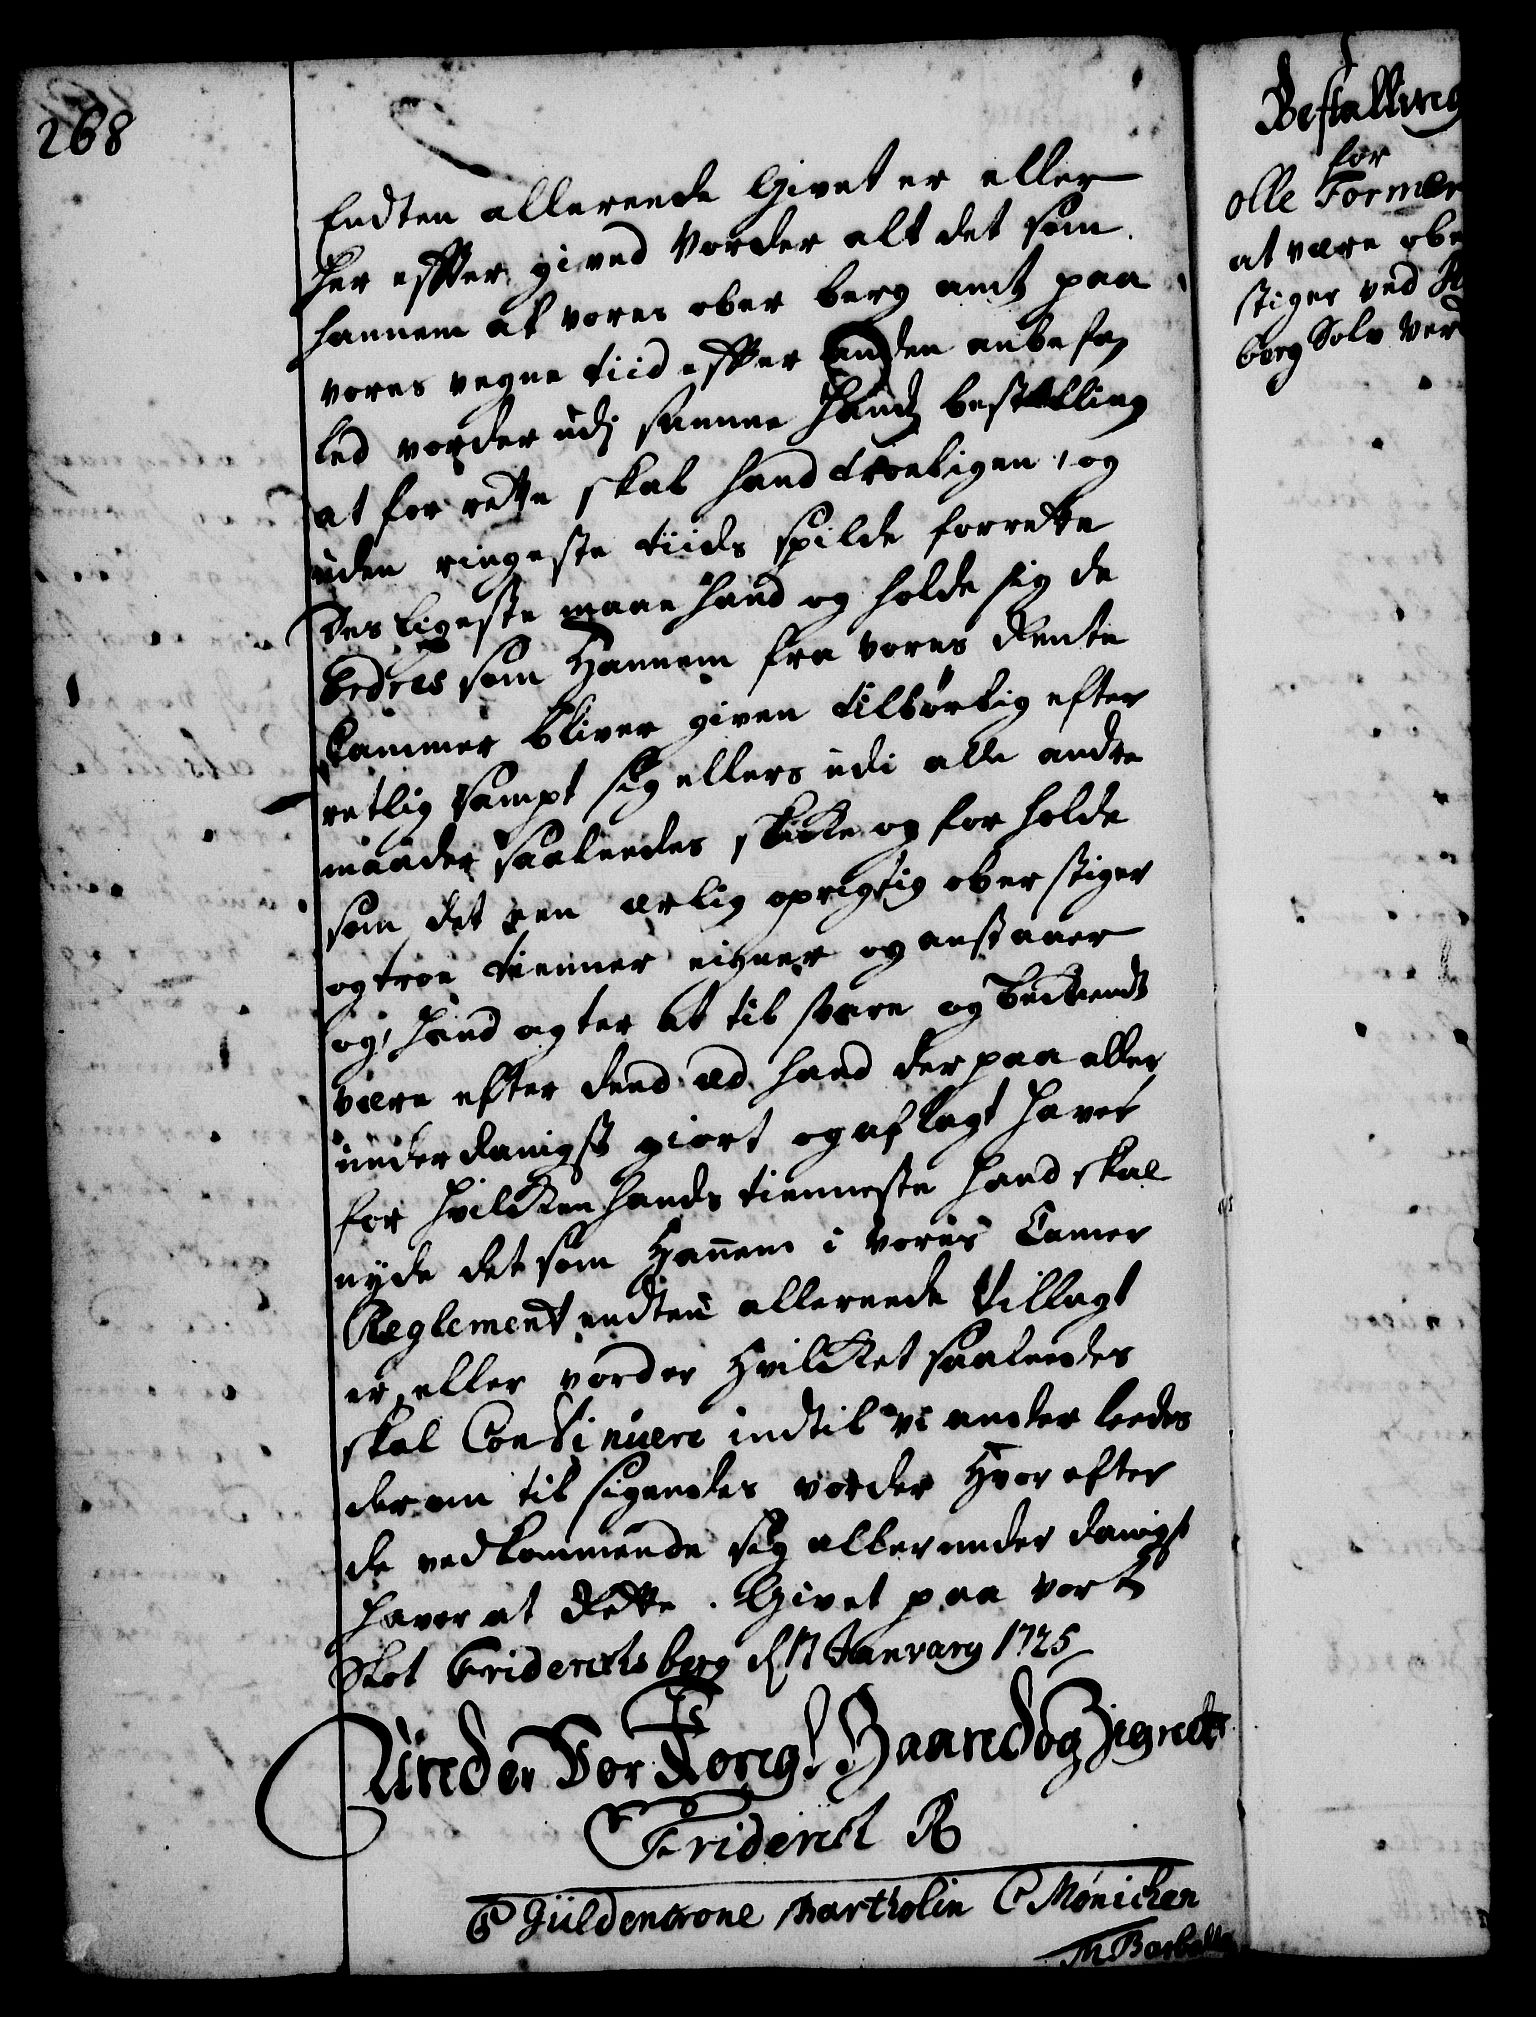 268
Endten allereede Givet er eller
her effter gived vorder alt det som
hannem af vores ober berg amt paa
vores vegne tiid effter anden anbefa-
led vorder udj samme hands bestalling
at for rette skal hand troeligen, og
uden ringeste tiids spilde forrette
Des ligeste maae hand og holde sig de
Ordres som Hannem fra vores Rente
Cammer bliver given tilbørlig efter
retlig sampt sig ellers udi alle andre
maader saaleedes skikke og for holde
som det een ærlig oprigtig ober stiger
og troe tienner eigner og anstaaer
og, hand agter at til svare og bekiendt
være efter dend æd hand der paa aller
underdanigst giort og aflagt haver
for hvilken hands tienneste hand skal
nyde det som Hannem i vores Camer
Reglement endten allereede tillagt
er, eller vorder Hvilket saaleedes
skal Continuere indtil vi anderleedes
derom til sigendes vorder Hvor efter
de vedkommende sig allerunderdanigst
haver at Rette. Givet paa vort
Slot Friderichsberg d 17 January 1725
Under Vor Kongl Haand og Zignete
Friderich R
C Güldencrone Bartholin C Mønichen
M Barholt
Bestalling
for
Olle Former
at være obe
stiger ved K
berg Sølv Verk